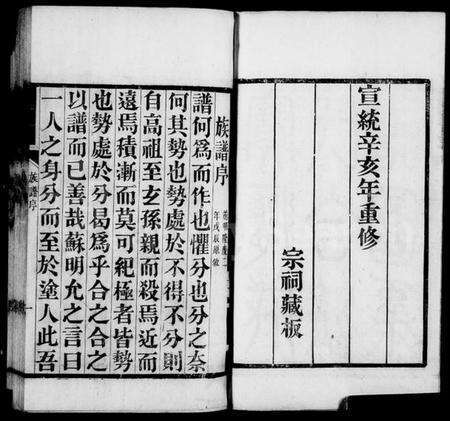 宣統辛亥年重修
宗祠藏板
族譜序
譜何爲而作也懼分也分之奈
何其勢也勢處於不得不分則
自高祖至玄孫親而殺焉近而
遠焉積漸而莫可紀極者皆勢
也勢處於分曷爲乎合之合之
以譜而已善哉蘇明允之言曰
一人之身分而至於塗人此吾
族譜序
一